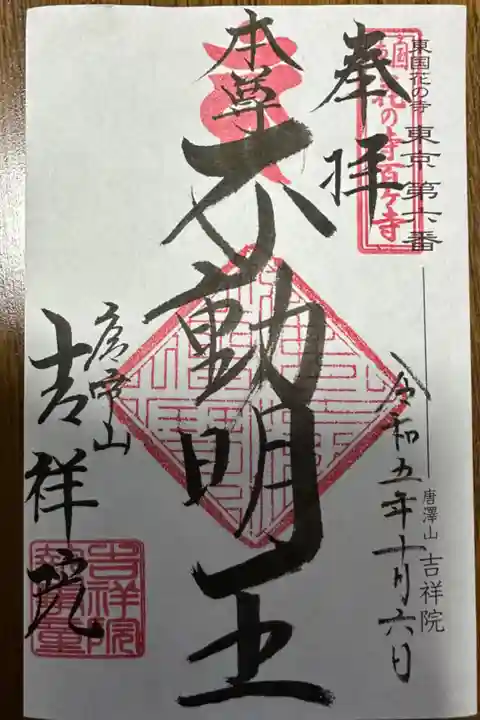 東国花の寺 東京 第六番
唐澤山 吉祥院
花の寺百ヶ寺
奉拝
令和五年十月六日
本尊
不動明王
吉祥院
吉祥院